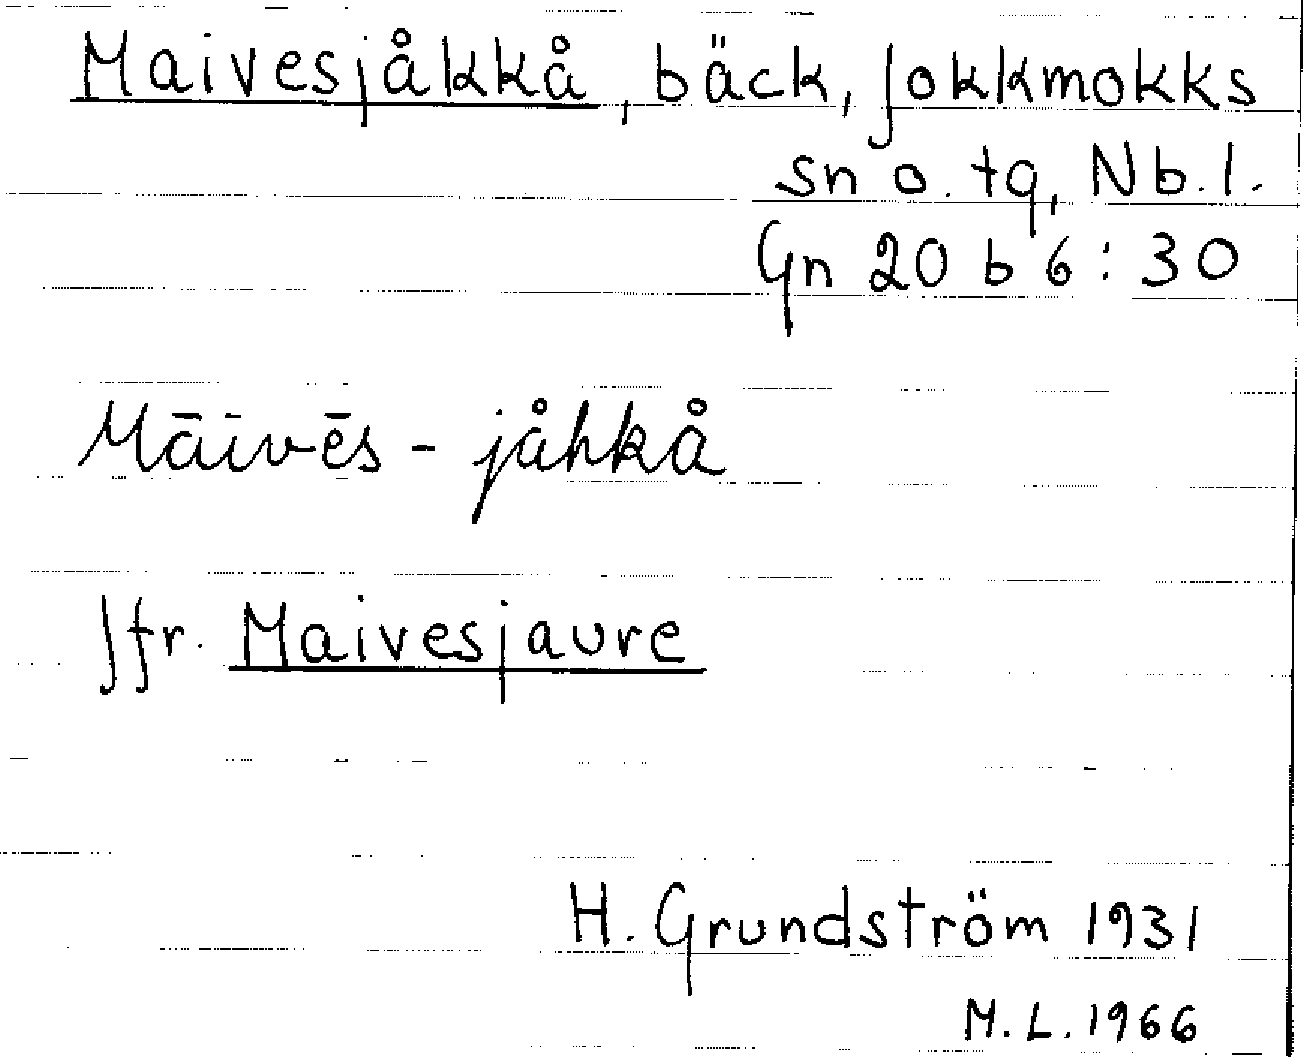 Maivesjåkkå, bäck, Jokkmokks
sn o. tg, Nb. l.
Gn 20 b 6:30
Māi̅vēs - jåhkå
Jfr. Maivesjaure
H. Grundström 1931
M. L. 1966